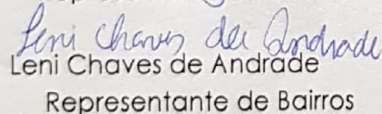 Leni Chaves de Andrade
Leni Chaves de Andrade
Representante de Bairros